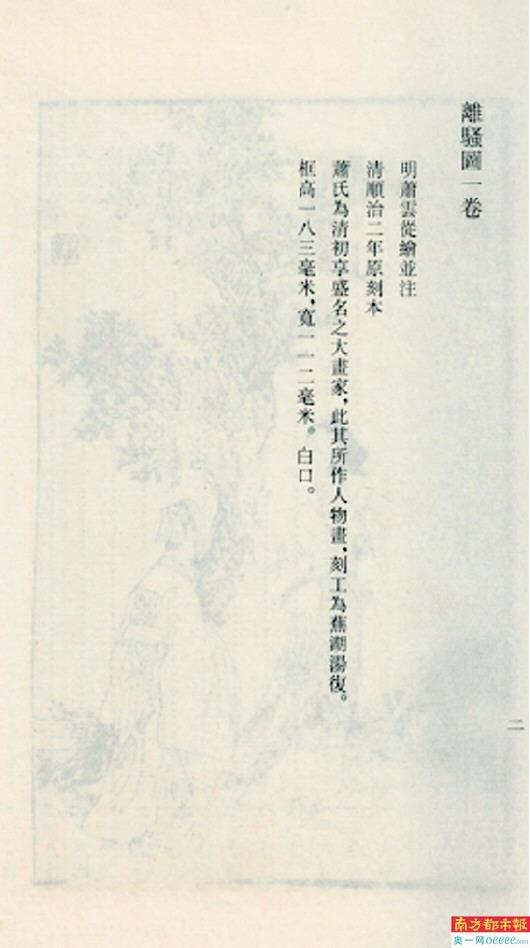 離騷圖一卷
明蕭雲從繪並注
清順治二年原刻本
蕭氏為清初享盛名之大畫家，此其所作人物畫，刻工為蕉湖湯復。
框高一八三毫米，寬一一二毫米。白口。
二
南方都市報
奥一网oeeee.com